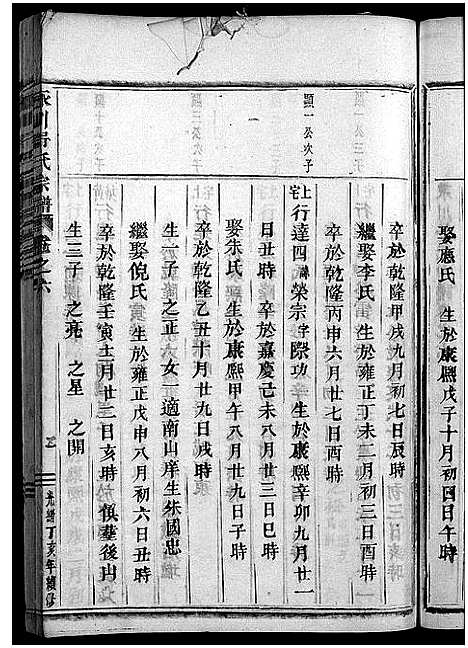 娶應氏 生於康熙戊子十月初四日午時
卒於乾隆甲戌九月初七日辰時
繼娶李氏 生於雍正丁未二月初三日酉時
卒於乾隆丙申六月廿七日酉時
顯一公次子
上宅行達四諱榮宗字際功 生於康熙辛卯九月廿一
日丑時 卒於嘉慶己未八月廿三日巳時
娶朱氏 生於康熙甲午八月廿九日子時
卒於乾隆乙丑十月廿九日戌時
生一子 之正 女一適南山庠生朱國忠
繼娶倪氏 生於雍正戊申八月初六日丑時
卒於乾隆壬寅十一月廿三日亥時
生三子 之亮 之星 之開
氏宗譜 卷之六
光緒丁亥年續修